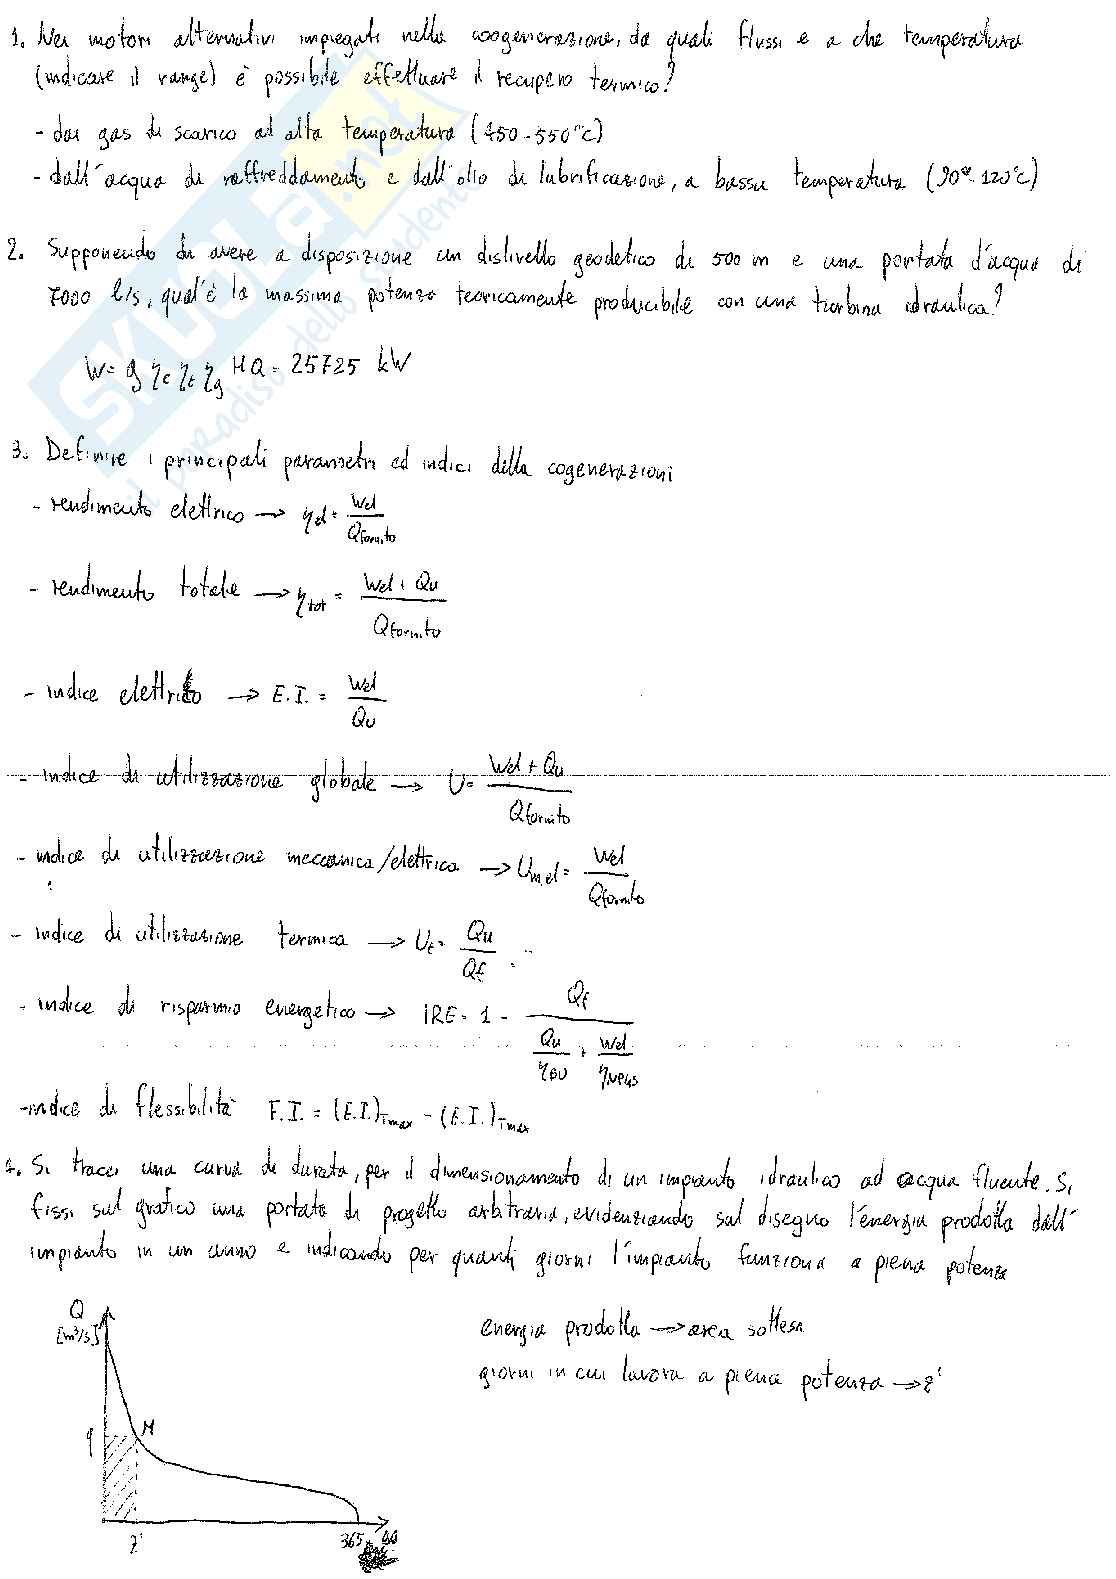 1. Nei motori alternativi impiegati nella coogenerazione, da quali flussi e a che temperatura
(indicare il range) è possibile effettuare il recupero termico?
- dai gas di scarico ad alta temperatura (450-550°C)
- dall'acqua di raffreddamento e dall'olio di lubrificazione, a bassa temperatura (90°-120°C)
2. Supponendo di avere a disposizione un dislivello geodetico di 500 m e una portata d'acqua di
7000 l/s, qual'è la massima potenza teoricamente producibile con una turbina idraulica?
W = g ηc ηt ηg HQ = 25725 kW
3. Definire i principali parametri ed indici della cogenerazioni
- rendimento elettrico → ηel = Wel / Qfornito
- rendimento totale → ηtot = Wel + Qu / Qfornito
- indice elettrico → E.I. = Wel / Qu
- indice di utilizzazione globale → U = Wel + Qu / Qfornito
- indice di utilizzazione meccanica/elettrica → Um,el = Wel / Qfornito
- indice di utilizzazione termica → Ut = Qu / Qf
- indice di risparmio energetico → IRE = 1 - Qf / Qu / ηBU + Wel /
- indice di flessibilità F.I. = (E.I.)Tmax - (E.I.)Tmax
4. Si tracci una curva di durata, per il dimensionamento di un impianto idraulico ad acqua fluente. Si
fissi sul grafico una portata di progetto arbitraria, evidenziando sul disegno l'energia prodotta dall'
impianto in un anno e indicando per quanti giorni l'impianto funziona a piena potenza
Q
[m³/s]
energia prodotta → area sottesa
giorni in cui lavora a piena potenza → z'
q
M
z'
365
gg
SKUOLA.net
il paradiso dello studente